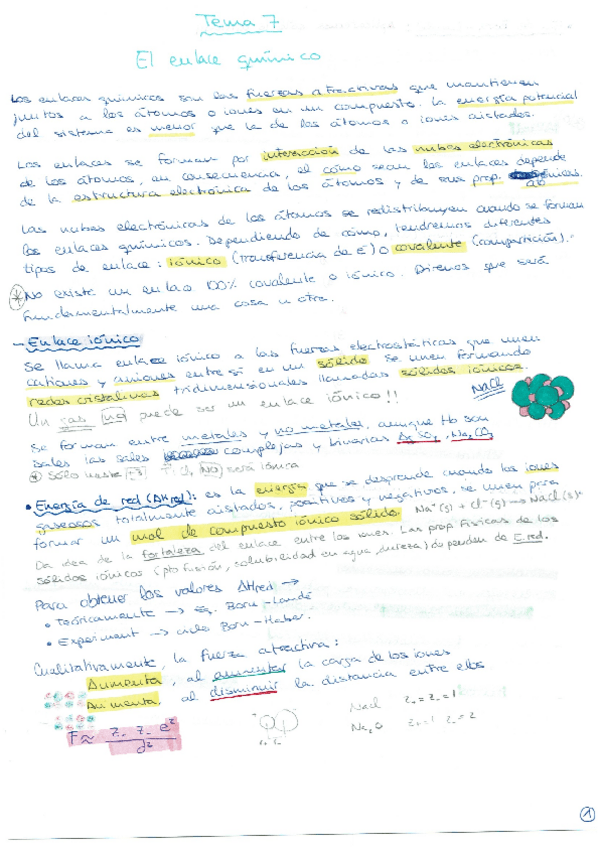 Tema 7
El enlace químico
Los enlaces químicos son las fuerzas atractivas que mantienen
juntos a los átomos o iones en un compuesto. La energía potencial
del sistema es menor que la de los átomos o iones aislados.
Los enlaces se forman por interacción de las nubes electrónicas
de los átomos, en consecuencia, el cómo sean los enlaces depende
de la estructura electrónica de los átomos y de sus prop.
Las nubes electrónicas de los átomos se redistribuyen cuando se forman
los enlaces químicos. Dependiendo de cómo, tendremos diferentes
tipos de enlace: iónico (transferencia de é) o covalente (compartición).
* No existe un enlace 100% covalente o iónico. Diremos que será
fundamentalmente una cosa u otra.
- Enlace iónico
Se llama enlace iónico a las fuerzas electrostáticas que unen
cationes y aniones entre sí en un sólido. Se unen formando
redes cristalinas tridimensionales llamadas sólidos iónicos.
Un gas NO puede ser un enlace iónico!!
NaCl
Se forman entre metales y no metales, aunque tb son
sales las sales complejas y binarias
Sólo hasta NO será iónica
• Energía de red (ΔH red): es la energía que se desprende cuando los iones
gaseosos totalmente aislados, positivos y negativos, se unen para
formar un mol de compuesto iónico sólido. Na⁺(g) + Cl⁻(g) → NaCl(s)
Da idea de la fortaleza del enlace entre los iones. Las prop. físicas de los
sólidos iónicos (pto fusión, solubilidad en agua, dureza) dependen de E.red.
Para obtener los valores ΔHred →
• Teóricamente → Eq. Born-Landé
• Experiment → ciclo Born-Haber.
Cualitativamente, la fuerza atractiva:
Aumenta, al aumentar la carga de los iones
Aumenta, al disminuir la distancia entre ellos
NaCl Z₊ = Z₋ = 1
F ≈ Z₊ Z₋ e² / d²
Z₊ Z₋
Na₂O Z₊=1 Z₋=2
1